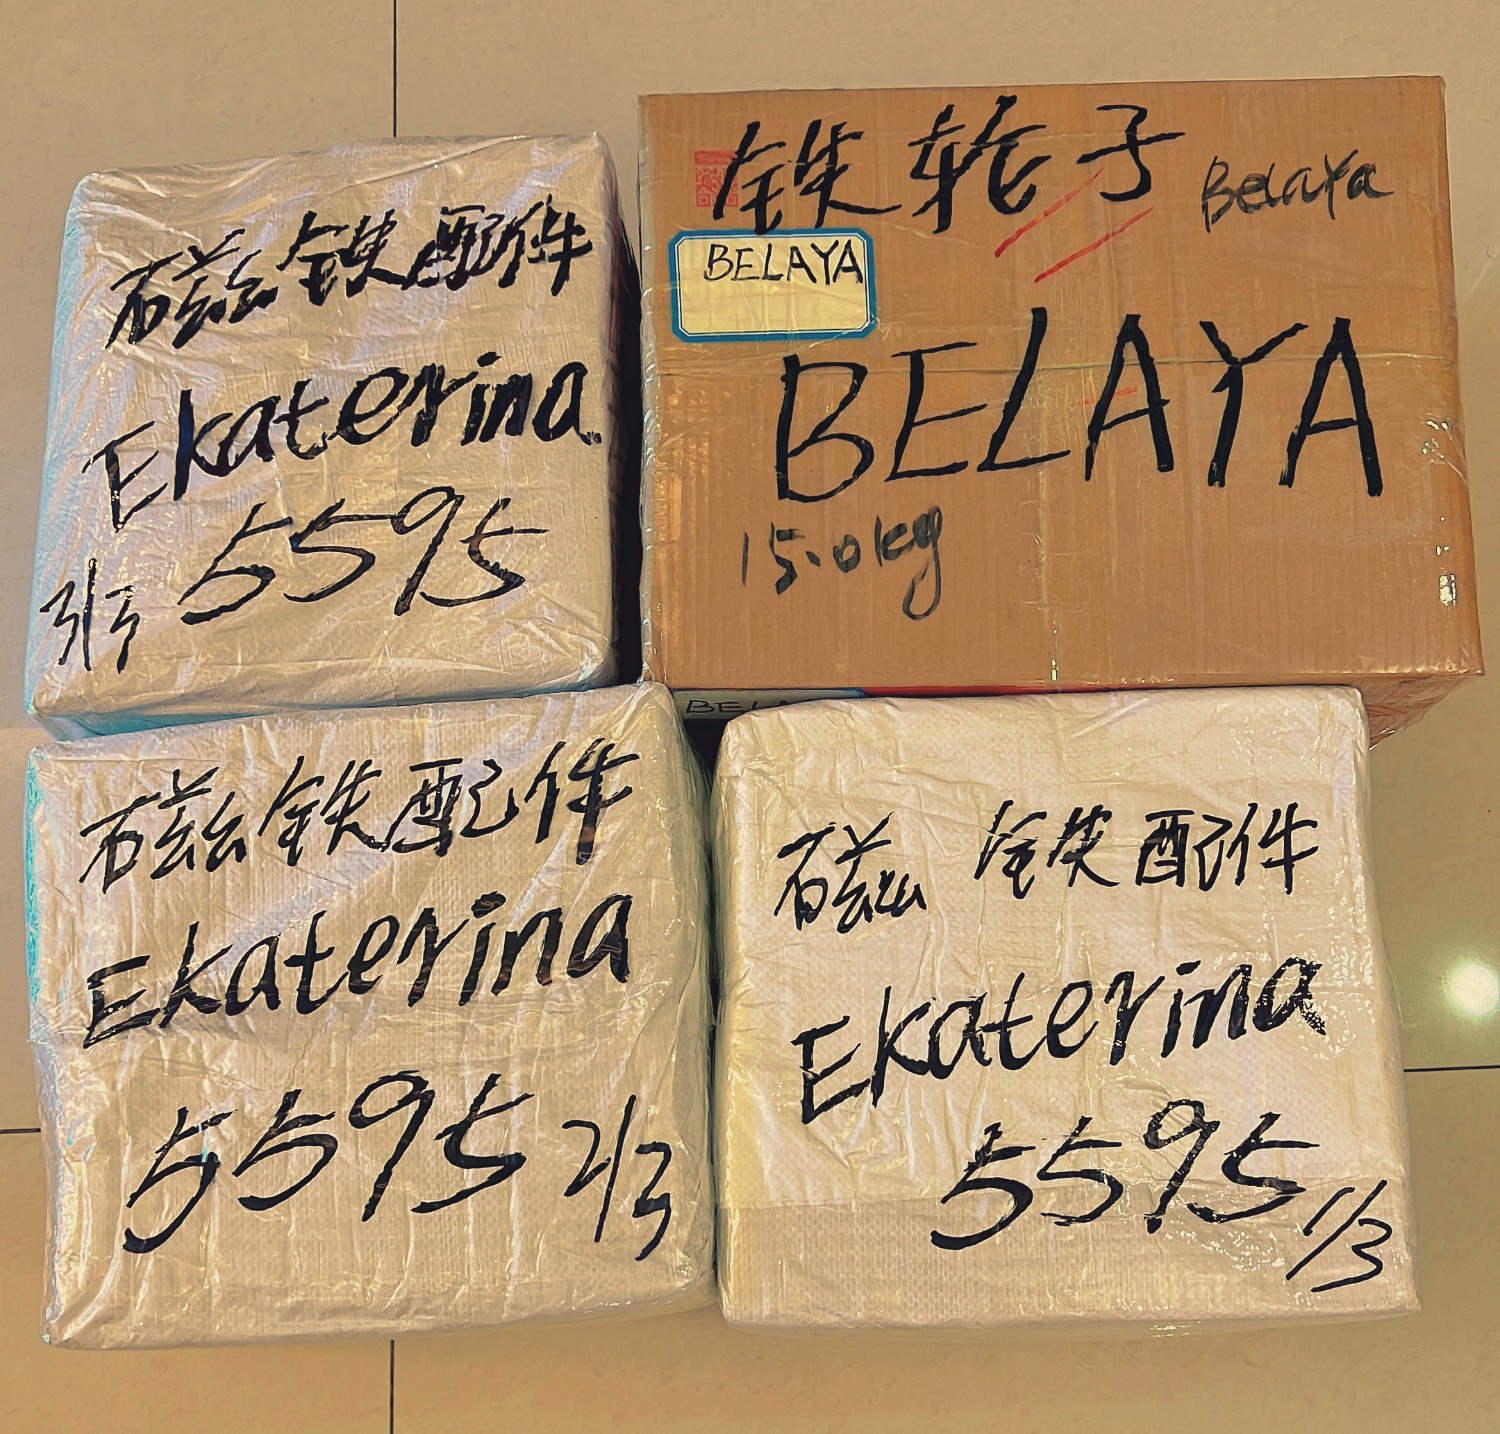 磁铁配件
Ekaterina
5595
3/3
铁轮子 Belaya
BELAYA
BELAYA
15.0kg
磁铁配件
Ekaterina
5595 2/3
磁铁配件
Ekaterina
5595
1/3